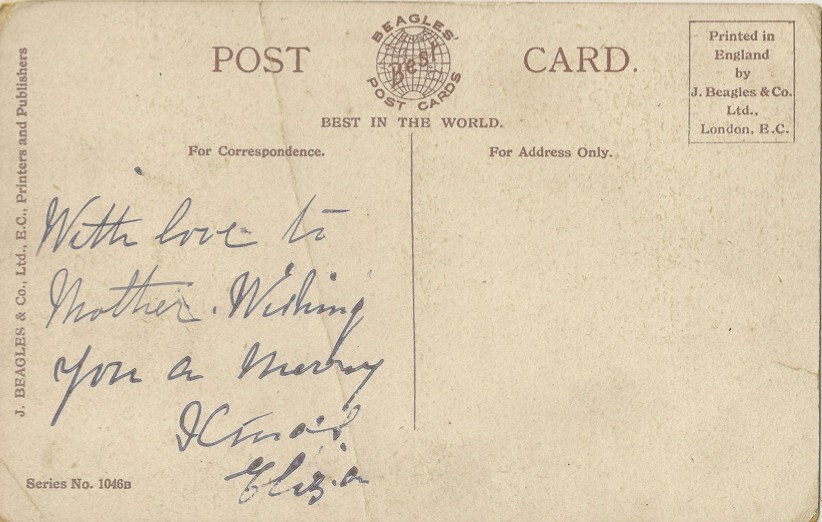 POST CARD.
BEAGLES'
Best
POST CARDS
BEST IN THE WORLD.
Printed in
England
by
J. Beagles & Co.
Ltd.,
London, E.C.
For Correspondence.
For Address Only.
J. BEAGLES & Co., Ltd., E.C., Printers and Publishers
With love to
Mother. Wishing
you a Merry
Eliza
Series No. 1046B